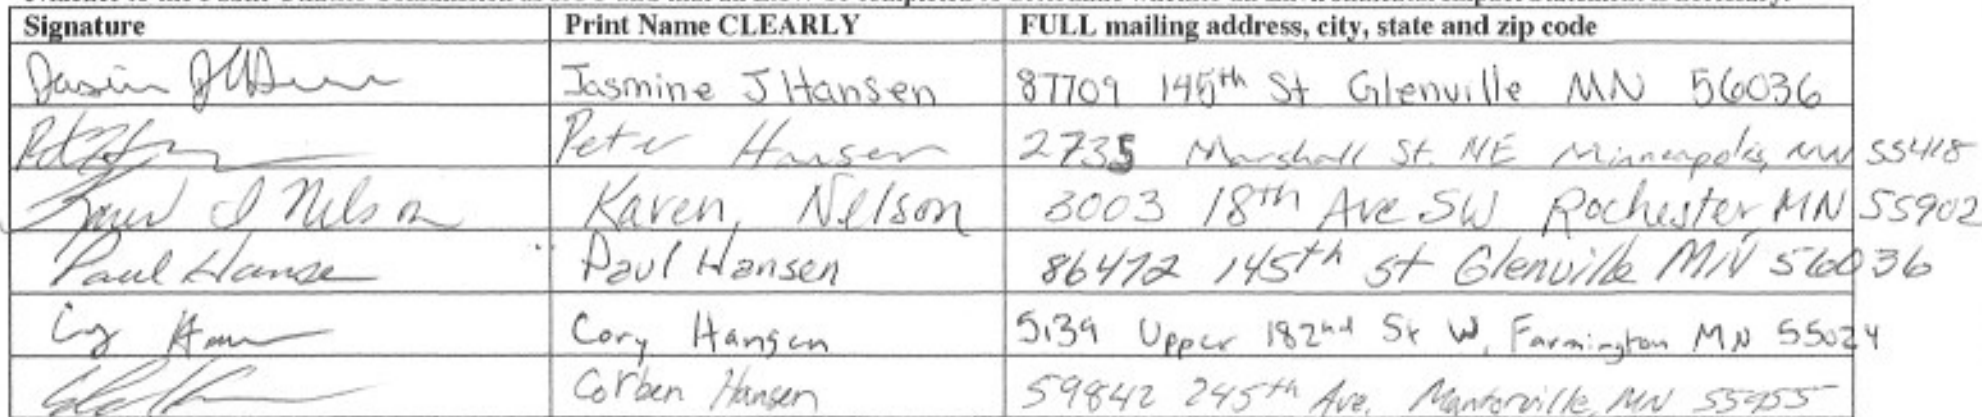 Signature Print Name CLEARLY FULL mailing address, city, state and zip code
Jasmine J Hansen 87709 145th St Glenville MN 56036
Peter Hansen 2735 Marshall St. NE Minneapolis, MN 55418
Karen I Nelson Karen, Nelson 3003 18th Ave SW Rochester MN 55902
Paul Hansen Paul Hansen 86472 145th st Glenville MN 56036
Cory Hansen 5139 Upper 182nd St W, Farmington MN 55024
Corben Hansen 59842 245th Ave. Mantorville, MN 55955